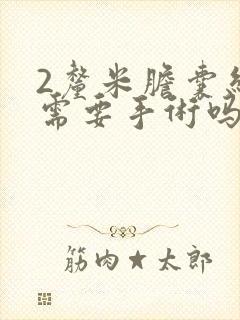 2釐米膽囊
需要手術吗
筋肉★太郎